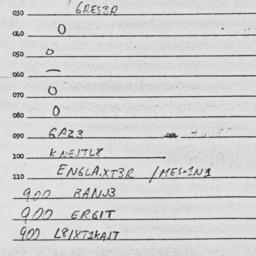 030 6RES3R
040 0
050 0
060 —
070 0
080 0
090 GAZ3
100 KNEITL8
110 ENGLA.XT3R /MES-1N1
900 BANJ3
900 ERGIT
900 L8/XT1KAIT